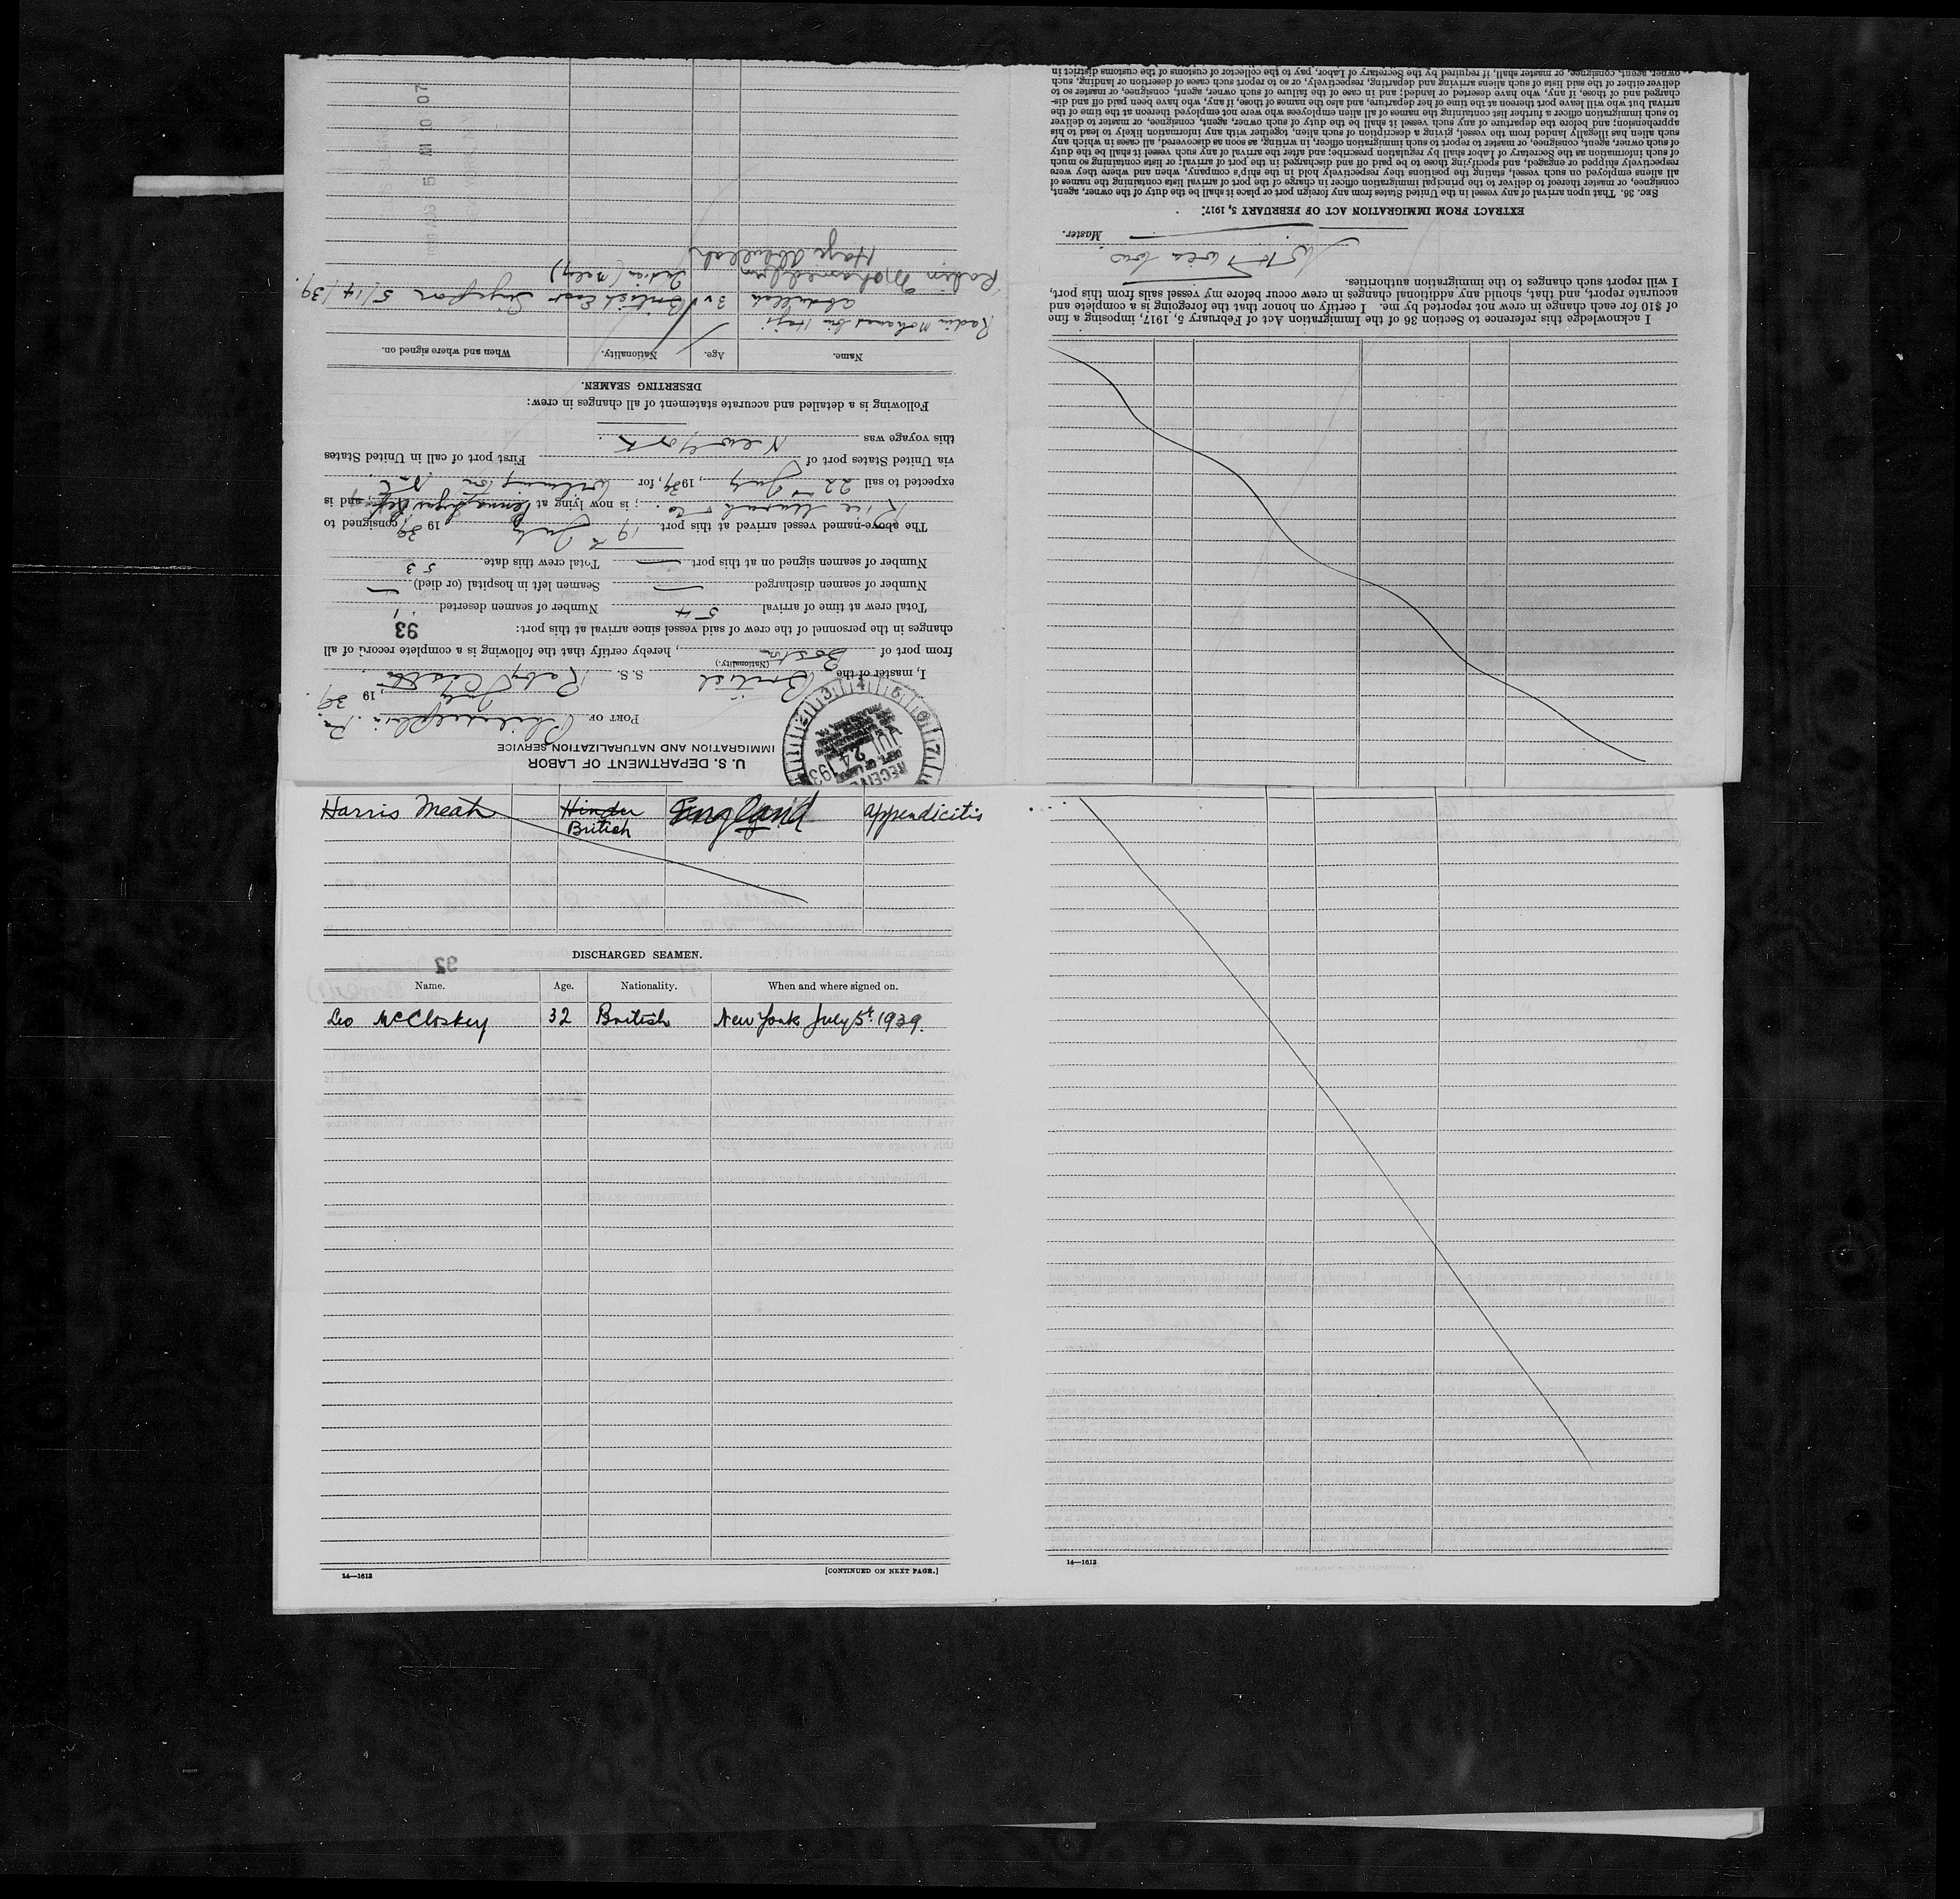 U. S. DEPARTMENT OF LABOR
IMMIGRATION AND NATURALIZATION SERVICE
PORT OF Philadelphia Pa.
July, 19 39.
I, master of the British S. S. Raby Castle,
(Nationality.)
from port of Boston, hereby certify that the following is a complete record of all
changes in the personnel of the crew of said vessel since arrival at this port:
93
Total crew at time of arrival 54 Number of seamen deserted 1
Number of seamen discharged — Seamen left in hospital (or died) —
Number of seamen signed on at this port — Total crew this date 53
The above-named vessel arrived at this port 19th July 1939, consigned to
; is now lying at ; and is
expected to sail 22nd July, 1939, for Wilmington
via United States port of First port of call in United States
this voyage was New York.
Following is a detailed and accurate statement of all changes in crew:
DESERTING SEAMEN.
Name. Age. Nationality. When and where signed on.
Radin Mohamed bin Haji
Abdullah British East 5/14/39.
Radin Indian (Malay)
Haji Abdullah
I acknowledge this reference to Section 36 of the Immigration Act of February 5, 1917, imposing a fine
of $10 for each change in crew not reported by me. I certify on honor that the foregoing is a complete and
accurate report, and that, should any additional changes in crew occur before my vessel sails from this port,
I will report such changes to the immigration authorities.
Master.
EXTRACT FROM IMMIGRATION ACT OF FEBRUARY 5, 1917.
SEC. 36. That upon arrival of any vessel in the United States from any foreign port or place it shall be the duty of the owner, agent,
consignee, or master thereof to deliver to the principal immigration officer in charge of the port of arrival lists containing the names of
all aliens employed on such vessel, stating the positions they respectively hold in the ship's company, when and where they were
respectively shipped or engaged, and specifying those to be paid off and discharged in the port of arrival; or lists containing so much
of such information as the Secretary of Labor shall by regulation prescribe; and after the arrival of any such vessel it shall be the duty
of such owner, agent, consignee, or master to report to such immigration officer, in writing, as soon as discovered, all cases in which any
such alien has illegally landed from the vessel, giving a description of such alien, together with any information likely to lead to his
apprehension; and before the departure of any such vessel it shall be the duty of such owner, agent, consignee, or master to deliver
to such immigration officer a further list containing the names of all alien employees who were not employed thereon at the time of the
arrival but who will leave port thereon at the time of her departure, and also the names of those, if any, who have been paid off and dis-
charged and of those, if any, who have deserted or landed; and in case of the failure of such owner, agent, consignee, or master so to
deliver either of the said lists of such aliens arriving and departing, respectively, or so to report such cases of desertion or landing, such
owner, agent, consignee, or master shall, if required by the Secretary of Labor, pay to the collector of customs of the customs district in
Harris Meah Hindu England Appendicitis
British
DISCHARGED SEAMEN.
92
Name. Age. Nationality. When and where signed on.
Leo McCloskey 32 British New York July 5th 1939.
14—1613 [CONTINUED ON NEXT PAGE.]
14—1613